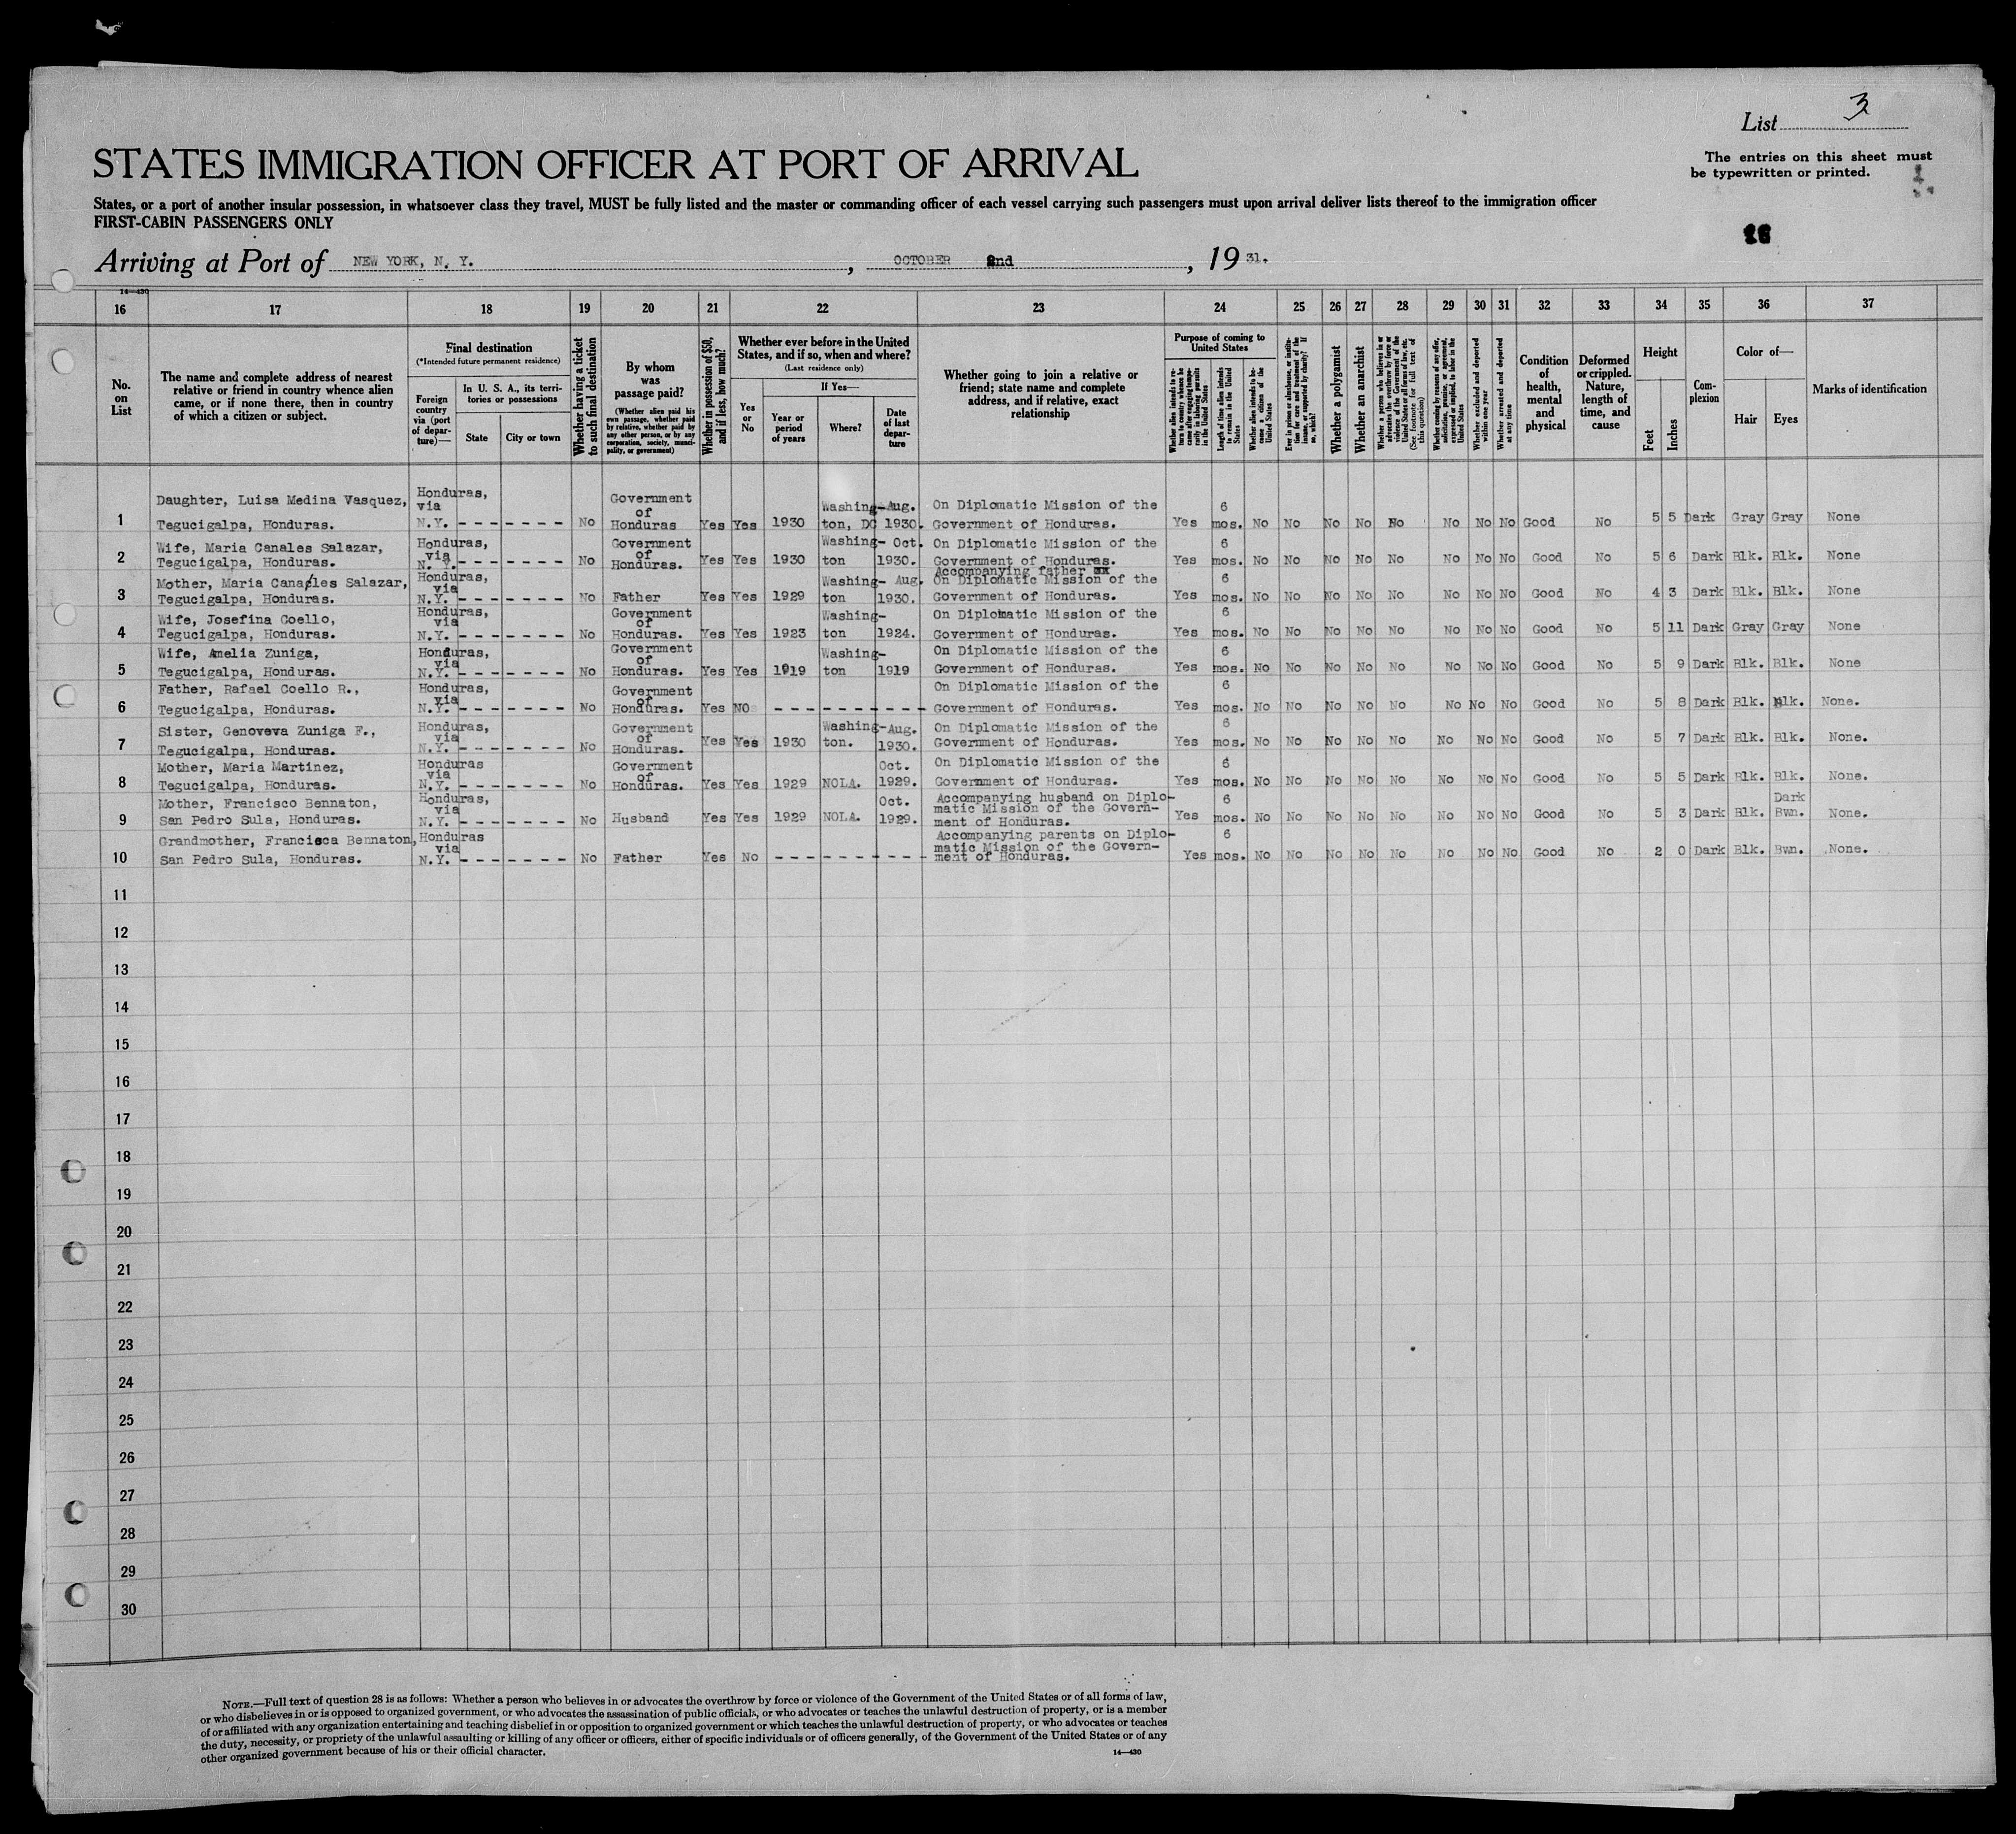 List 3
STATES IMMIGRATION OFFICER AT PORT OF ARRIVAL
The entries on this sheet must
be typewritten or printed.
States, or a port of another insular possession, in whatsoever class they travel, MUST be fully listed and the master or commanding officer of each vessel carrying such passengers must upon arrival deliver lists thereof to the immigration officer
FIRST-CABIN PASSENGERS ONLY
Arriving at Port of NEW YORK, N. Y. , OCTOBER 2nd , 19 31.
14—430
16 17 18 19 20 21 22 23 24 25 26 27 28 29 30 31 32 33 34 35 36 37
No.
on
List
The name and complete address of nearest
relative or friend in country whence alien
came, or if none there, then in country
of which a citizen or subject.
Final destination
(*Intended future permanent residence)
Foreign
country
via (port
of depar-
ture)—
In U. S. A., its terri-
tories or possessions
State
City or town
Whether having a ticket
to such final destination
By whom
was
passage paid?
(Whether alien paid his
own passage, whether paid
by relative, whether paid by
any other person, or by any
corporation, society, munici-
pality, or government)
Whether in possession of $50,
and if less, how much?
Whether ever before in the United
States, and if so, when and where?
(Last residence only)
Yes
or
No
If Yes—
Year or
period
of years
Where?
Date
of last
depar-
ture
Whether going to join a relative or
friend; state name and complete
address, and if relative, exact
relationship
Purpose of coming to
United States
Whether alien intends to re-
turn to country whence he
came after engaging tempo-
rarily in laboring pursuits
in the United States
Length of time alien intends
to remain in the United
States
Whether alien intends to be-
come a citizen of the
United States
Ever in prison or almshouse, or institu-
tion for care and treatment of the
insane, or supported by charity? If
so, which?
Whether a polygamist
Whether an anarchist
Whether a person who believes in or
advocates the overthrow by force or
violence of the Government of the
United States or all forms of law, etc.
(See footnote for full text of
this question)
Whether coming by reasons of any offer,
solicitation, promise, or agreement,
expressed or implied, to labor in the
United States
Whether excluded and deported
within one year
Whether arrested and deported
at any time
Condition
of
health,
mental
and
physical
Deformed
or crippled.
Nature,
length of
time, and
cause
Height
Feet
Inches
Com-
plexion
Color of—
Hair
Eyes
Marks of identification
Daughter, Luisa Medina Vasquez, Honduras, via Government of Washing-Aug. On Diplomatic Mission of the 6
1 Tegucigalpa, Honduras. N.Y. - - - - - - - No Honduras Yes Yes 1930 ton, DC 1930. Government of Honduras. Yes mos. No No No No No No No No Good No 5 5 Dark Gray Gray None
Wife, Maria Canales Salazar, Honduras, via Government of Washing- Oct. On Diplomatic Mission of the 6
2 Tegucigalpa, Honduras. N. Y. - - - - - - - No Honduras. Yes Yes 1930 ton 1930. Government of Honduras. Yes mos. No No No No No No No No Good No 5 6 Dark Blk. Blk. None
Accompanying father
Mother, Maria Canales Salazar, Honduras, via Washing- Aug. On Diplomatic Mission of the 6
3 Tegucigalpa, Honduras. N.Y. - - - - - - - No Father Yes Yes 1929 ton 1930. Government of Honduras. Yes mos. No No No No No No No No Good No 4 3 Dark Blk. Blk. None
Wife, Josefina Coello, Honduras, via Government of Washing- On Diplomatic Mission of the 6
4 Tegucigalpa, Honduras. N.Y. - - - - - - - No Honduras. Yes Yes 1923 ton 1924. Government of Honduras. Yes mos. No No No No No No No No Good No 5 11 Dark Gray Gray None
Wife, Amelia Zuniga, Honduras, via Government of Washing- On Diplomatic Mission of the 6
5 Tegucigalpa, Honduras. N.Y. - - - - - - - No Honduras. Yes Yes 1919 ton 1919 Government of Honduras. Yes mos. No No No No No No No No Good No 5 9 Dark Blk. Blk. None
Father, Rafael Coello R., Honduras, via Government of On Diplomatic Mission of the 6
6 Tegucigalpa, Honduras. N.Y. - - - - - - - No Honduras. Yes NO - - - - - - - - - Government of Honduras. Yes mos. No No No No No No No No Good No 5 8 Dark Blk. Blk. None.
Sister, Genoveva Zuniga F., Honduras, via Government of Washing-Aug. On Diplomatic Mission of the 6
7 Tegucigalpa, Honduras. N.Y. - - - - - - - No Honduras. Yes Yes 1930 ton. 1930. Government of Honduras. Yes mos. No No No No No No No No Good No 5 7 Dark Blk. Blk. None.
Mother, Maria Martinez, Honduras via Government of Oct. On Diplomatic Mission of the 6
8 Tegucigalpa, Honduras. N.Y. - - - - - - - No Honduras. Yes Yes 1929 NOLA. 1929. Government of Honduras. Yes mos. No No No No No No No No Good No 5 5 Dark Blk. Blk. None.
Mother, Francisco Bennaton, Honduras, via Oct. Accompanying husband on Diplo- matic Mission of the Govern- 6 Dark
9 San Pedro Sula, Honduras. N.Y. - - - - - - - No Husband Yes Yes 1929 NOLA. 1929. ment of Honduras. Yes mos. No No No No No No No No Good No 5 3 Dark Blk. Bwn. None.
Grandmother, Francisca Bennaton, Honduras via Accompanying parents on Diplo- matic Mission of the Govern- 6
10 San Pedro Sula, Honduras. N.Y. - - - - - - - No Father Yes No - - - - - - - - - ment of Honduras. Yes mos. No No No No No No No No Good No 2 0 Dark Blk. Bwn. None.
11
12
13
14
15
16
17
18
19
20
21
22
23
24
25
26
27
28
29
30
NOTE.—Full text of question 28 is as follows: Whether a person who believes in or advocates the overthrow by force or violence of the Government of the United States or of all forms of law,
or who disbelieves in or is opposed to organized government, or who advocates the assassination of public officials, or who advocates or teaches the unlawful destruction of property, or is a member
of or affiliated with any organization entertaining and teaching disbelief in or opposition to organized government or which teaches the unlawful destruction of property, or who advocates or teaches
the duty, necessity, or propriety of the unlawful assaulting or killing of any officer or officers, either of specific individuals or of officers generally, of the Government of the United States or of any
other organized government because of his or their official character.
14—430